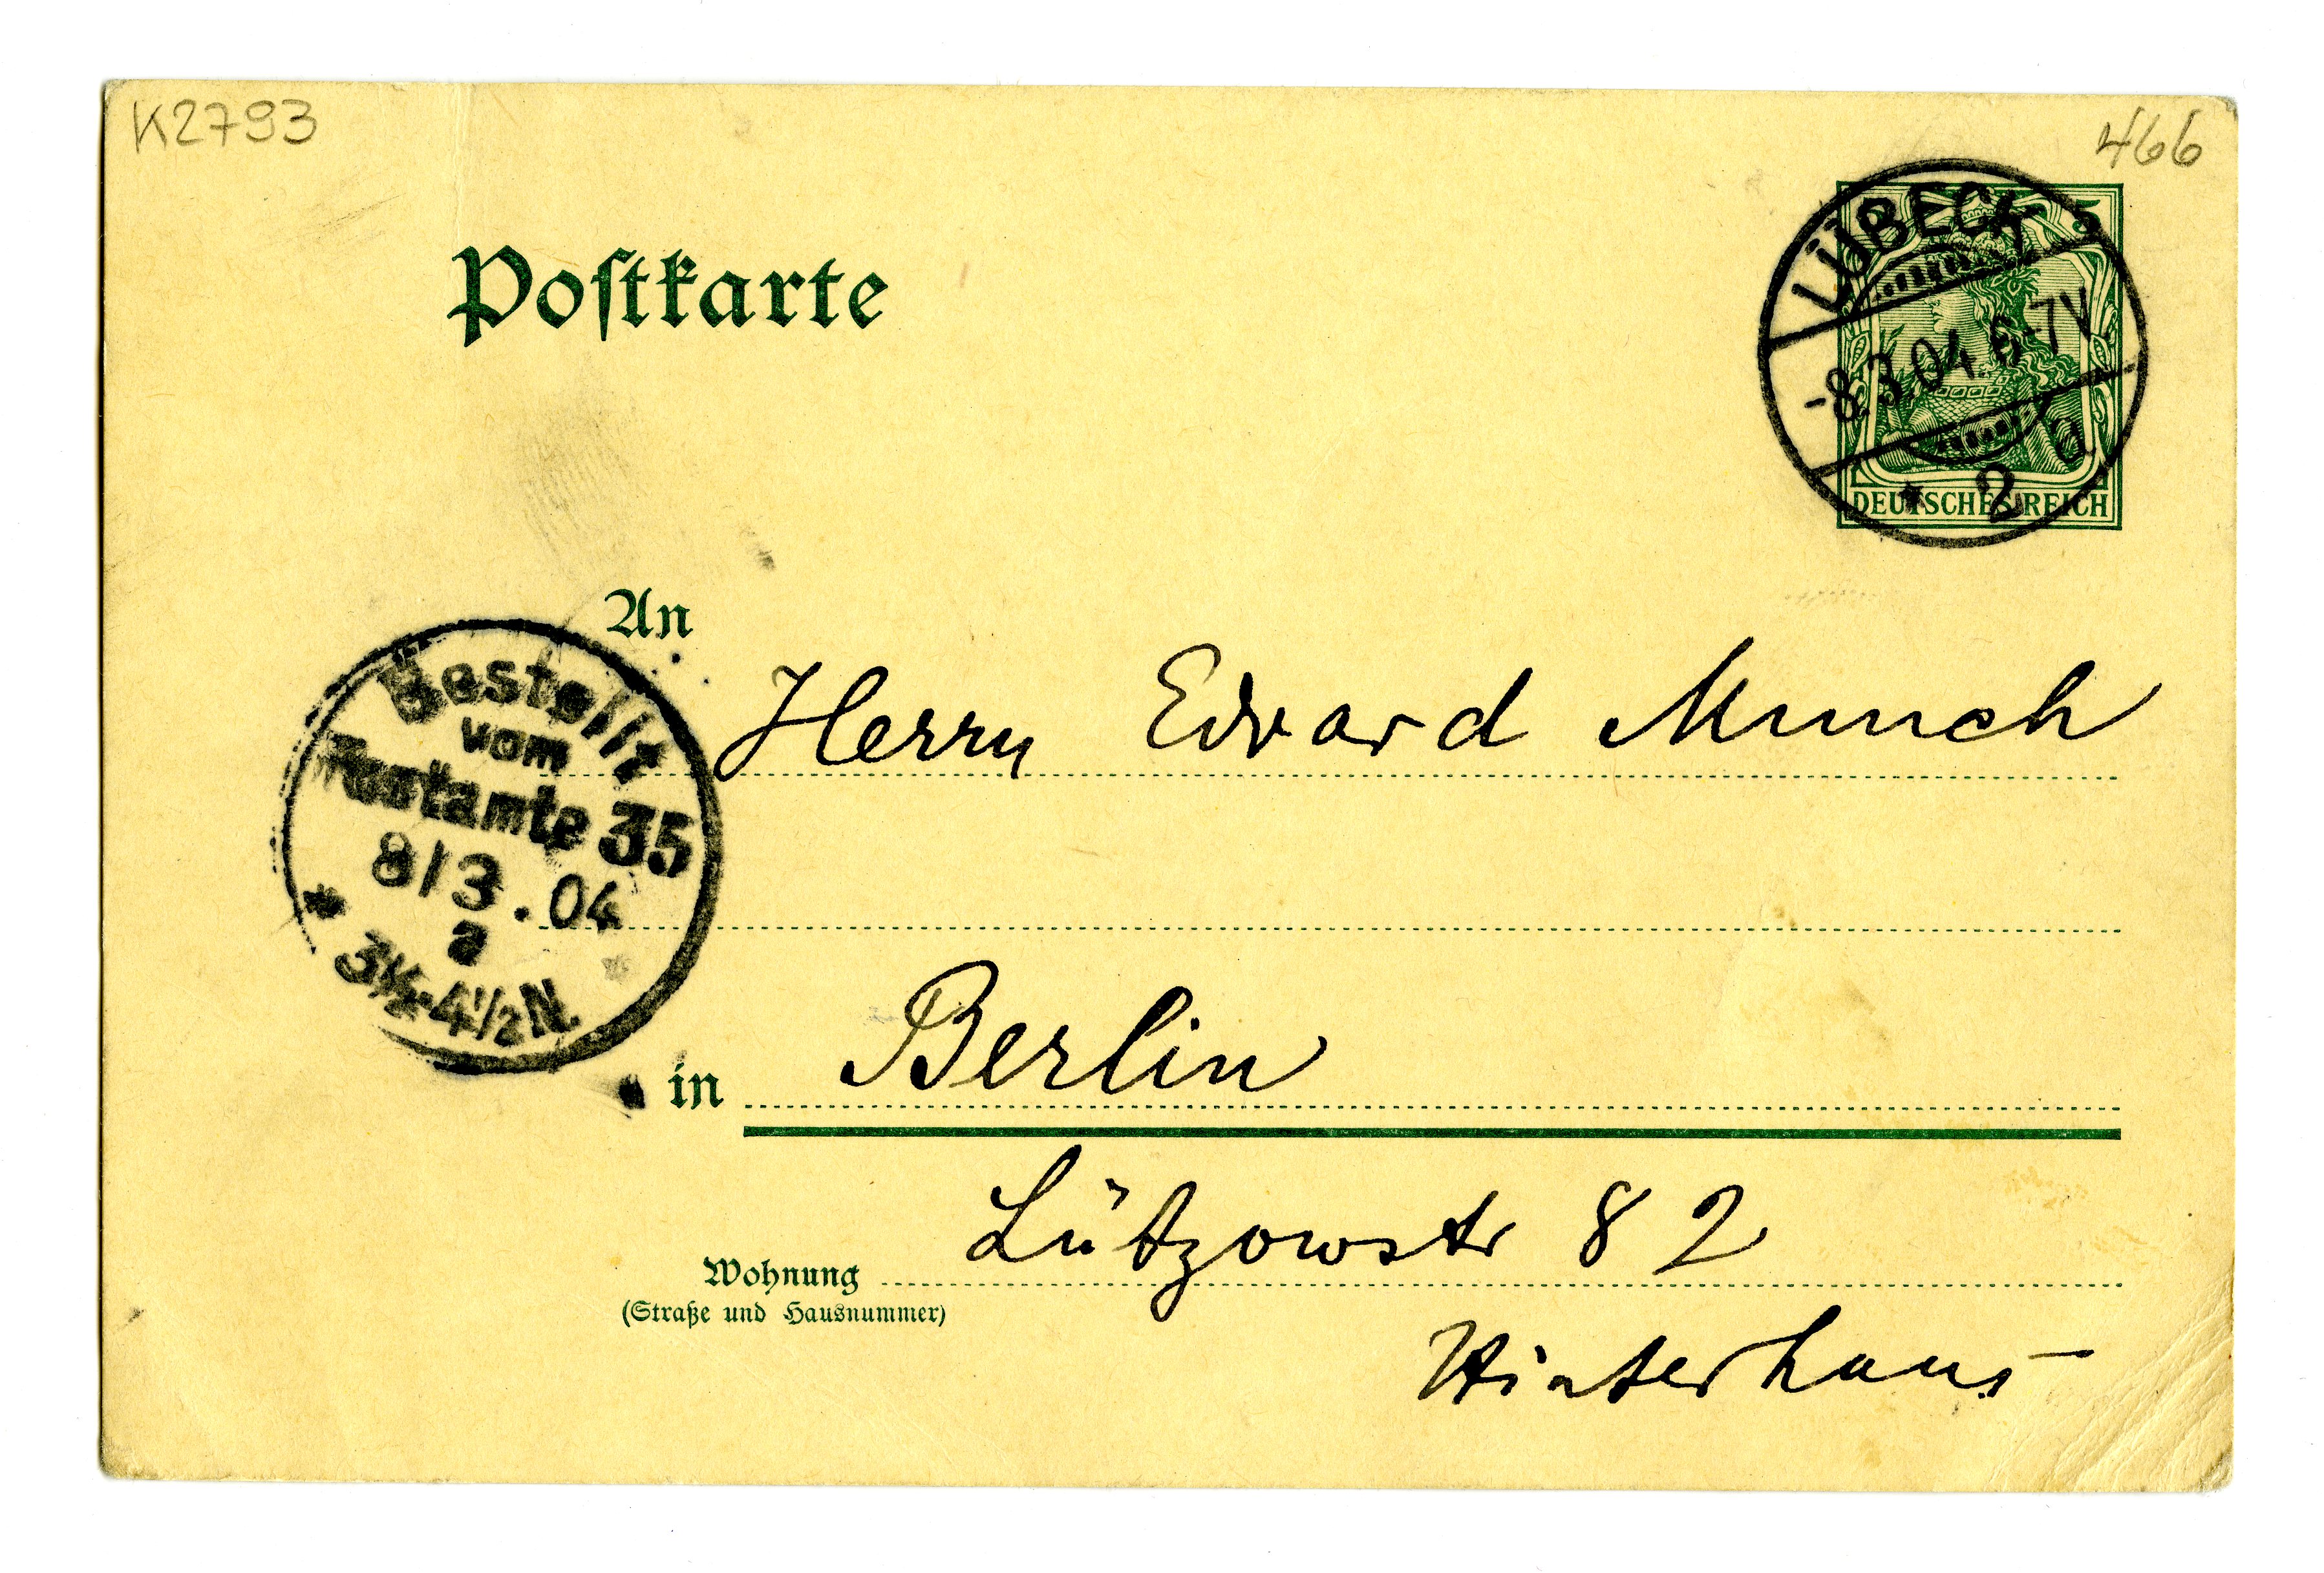 K2793
466
Postkarte
5
LÜBECK
-8.3.04.6-7V.
* 2 a
DEUTSCHES REICH
An
Herrn Edvard Munch
Bestellt
vom
Postamte 35
8/3.04
a
3½-4½N.
in Berlin
Lützowstr 82
Wohnung
(Straße und Hausnummer)
Hinterhaus